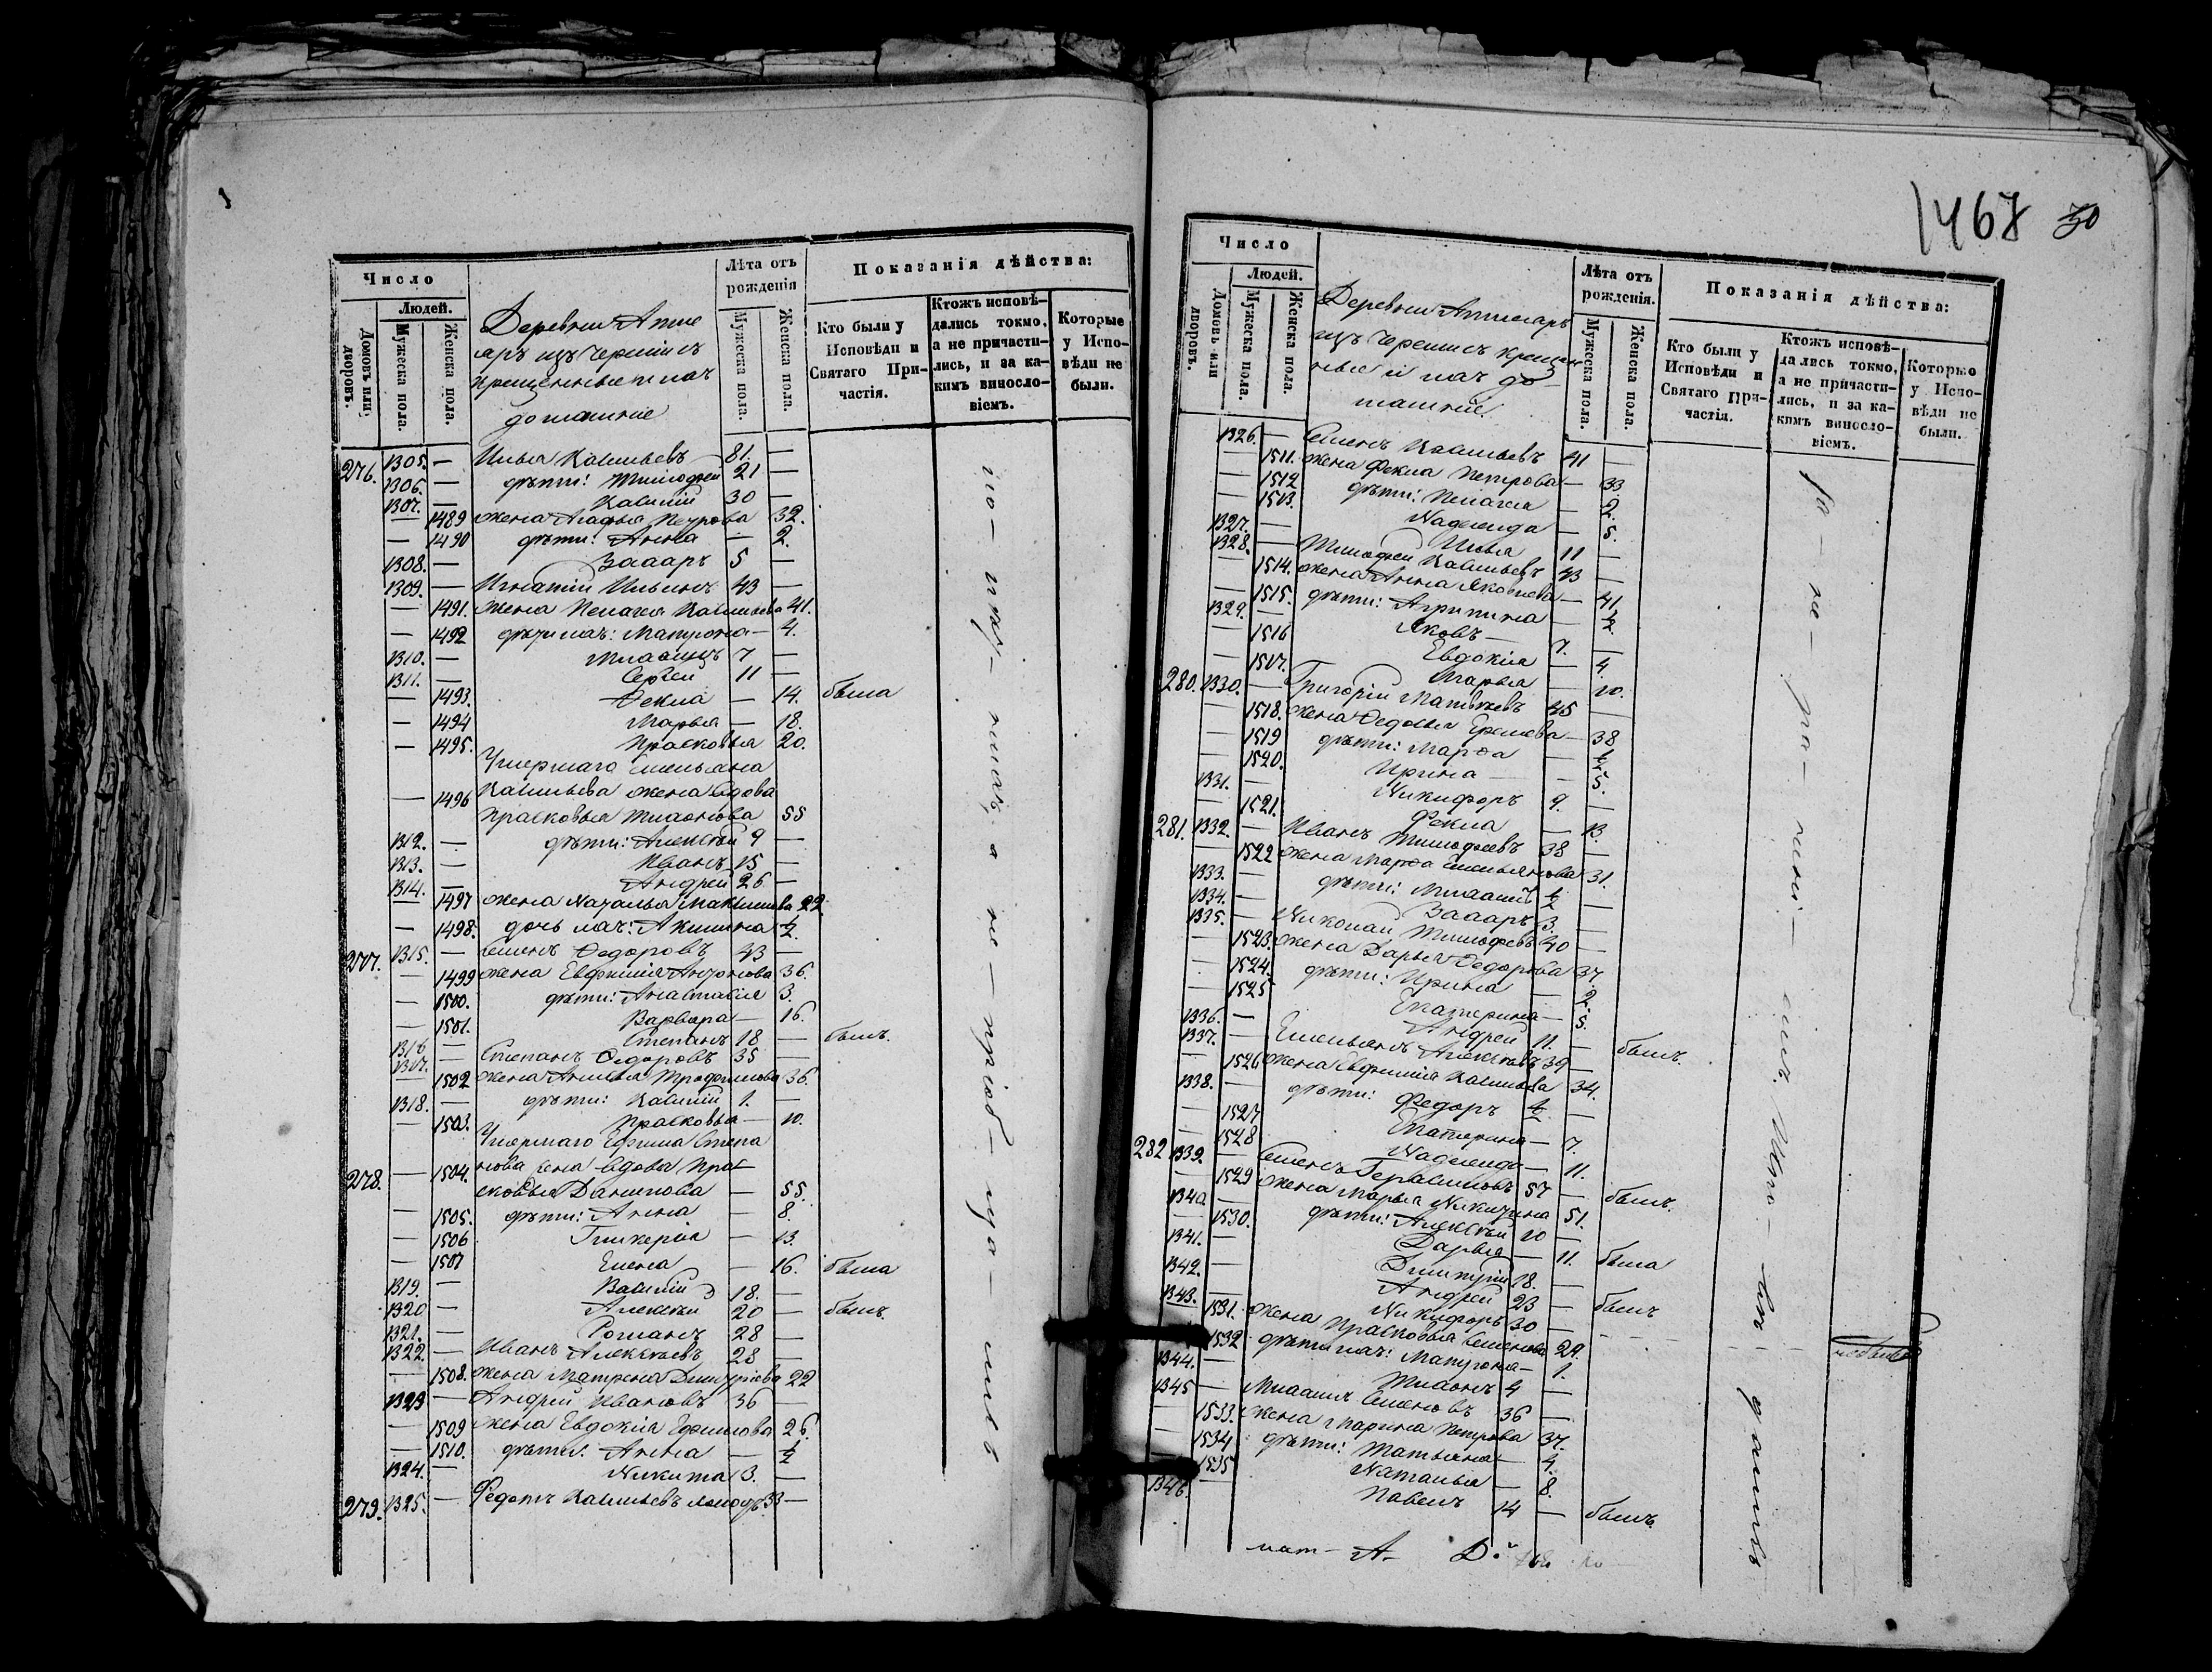 1468 30
Число
Людей.
Домовъ или дворовъ.
Мужеска пола.
Женска пола.
Деревни Апше
аръ изъ Черемисъ
крещенные и ихъ
домашніе
Лѣта отъ рожденія
Мужеска пола.
Женска пола.
Показанія дѣйства:
Кто были у Исповѣди и Святаго Причастія.
Ктожъ исповѣдались токмо, а не причастились, и за какимъ винословіемъ.
Которые у Исповѣди не были.
276. 1305. — Илья Васильевъ 81. —
1306. — дѣти: Тимофей 21 —
1307. — Василій 30 —
— 1489 жена Агафья Петрова 32.
— 1490 дѣти: Анна — 2.
1308. — Захаръ 5 —
1309. — Игнатій Ильинъ 43 —
— 1491. жена Пелагея Васильева 41.
— 1492 дѣти ихъ: Матрона — 4.
1310. — Михаилъ 7 —
1311. — Сергей 11 —
— 1493. Ѳекла — 14. была
— 1494 Марья — 18.
— 1495. Прасковья 20.
Умершаго Емельяна
— 1496 Васильева жена вдова
Прасковья Тихонова 55
1312. — дѣти: Алексѣй 9 —
1313. — Иванъ 15 —
1314. — Андрей 26 —
— 1497 жена Наталья Максимова 22
— 1498. дочь ихъ: Акилина ½
277. 1315. — Семенъ Ѳедоровъ 43 —
— 1499 жена Евфимія Антонова 36.
— 1500. дѣти: Анастасія 3.
— 1501. Варвара — 16.
1316 — Степанъ 18 — былъ.
1317. — Степанъ Ѳедоровъ 35 —
— 1502 жена Анисья Трофимова 36.
1318. — дѣти: Василій 1. —
— 1503. Прасковья — 10.
Умершаго Ефима Степа
278. — 1504. нова жена вдова Пра
сковья Данилова — 55.
— 1505. дѣти: Анна — 8.
— 1506 Гликерія — 13.
— 1507 Елена — 16. была
1319. — Василій 18. —
1320 — Алексѣй 20 — былъ.
1321. — Романъ 28 —
1322. — Иванъ Алексѣевъ 28 —
— 1508. жена Матрена Дмитріева 22
1323 — Андрей Ивановъ 36 —
— 1509 жена Евдокія Ефимова 26.
— 1510. дѣти: Анна — ½
1324. — Никита 3. —
279. 1325. — Ѳедотъ Васильевъ холостъ 33 —
Число
Людей.
Домовъ или дворовъ.
Мужеска пола.
Женска пола.
Деревни Апшеаръ
изъ Черемисъ креще
ные и ихъ до
машніе.
Лѣта отъ рожденія.
Мужеска пола.
Женска пола.
Показанія дѣйства:
Кто были у Исповѣди и Святаго Причастія.
Ктожъ исповѣдались токмо, а не причастились, и за какимъ винословіемъ.
Которыо у Исповѣди не были.
1326. — Семенъ Васильевъ 41 —
— 1511. жена Ѳекла Петрова — 33
— 1512 дѣти: Пелагея — 2.
— 1513. Надежда — 5.
1327. — Илья 11 —
1328. — Тимофей Васильевъ 43 —
— 1514. жена Анна Яковлева — 41.
— 1515. дѣти: Агрипина — ½
1329. — Яковъ — 7. —
— 1516 Евдокія — 4.
— 1517. Марья — 10.
280. 1330. — Григорій Матвѣевъ 45 —
— 1518. жена Ѳедосья Еремѣева — 38
— 1519 дѣти: Марѳа — ½
— 1520. Ирина — 5.
1331. — Никифоръ 9. —
— 1521. Ѳекла — 13.
281. 1332. — Иванъ Тимофеевъ 38 —
— 1522 жена Марѳа Емельянова 31.
1333. — дѣти: Михаилъ ½ —
1334. — Захаръ 3. —
1335. — Николай Тимофеевъ 40 —
— 1523. жена Дарья Ѳедорова 37.
— 1524. дѣти: Ирина — 2.
— 1525 Екатерина — 5.
1336. — Андрей 11. — былъ.
1337. — Емельянъ Алексѣевъ 39 —
— 1526 жена Евфимія Васильева 34.
1338. — дѣти: Ѳедоръ ½ —
— 1527 Екатерина — 7.
— 1528 Надежда — 11.
282 1339. — Семенъ Герасимовъ 57 — былъ.
— 1529 жена Марья Никитина 51.
1340 — дѣти: Алексѣй 10 —
— 1530. Дарья — 11. была
1341. — Дмитрій 18. —
1342. — Андрей 23 — былъ
1343. — Никифоръ 30 —
1531. жена Прасковья Семенова 29.
1532 дѣти ихъ: Матрона — 1.
1344. — Тихонъ 4 —
1345 — Михаилъ Семеновъ 36 —
— 1533. жена Марина Петрова 37.
— 1534 дѣти: Татьяна — 4.
— 1535 Наталья — 8.
1346. Павелъ 14 — былъ